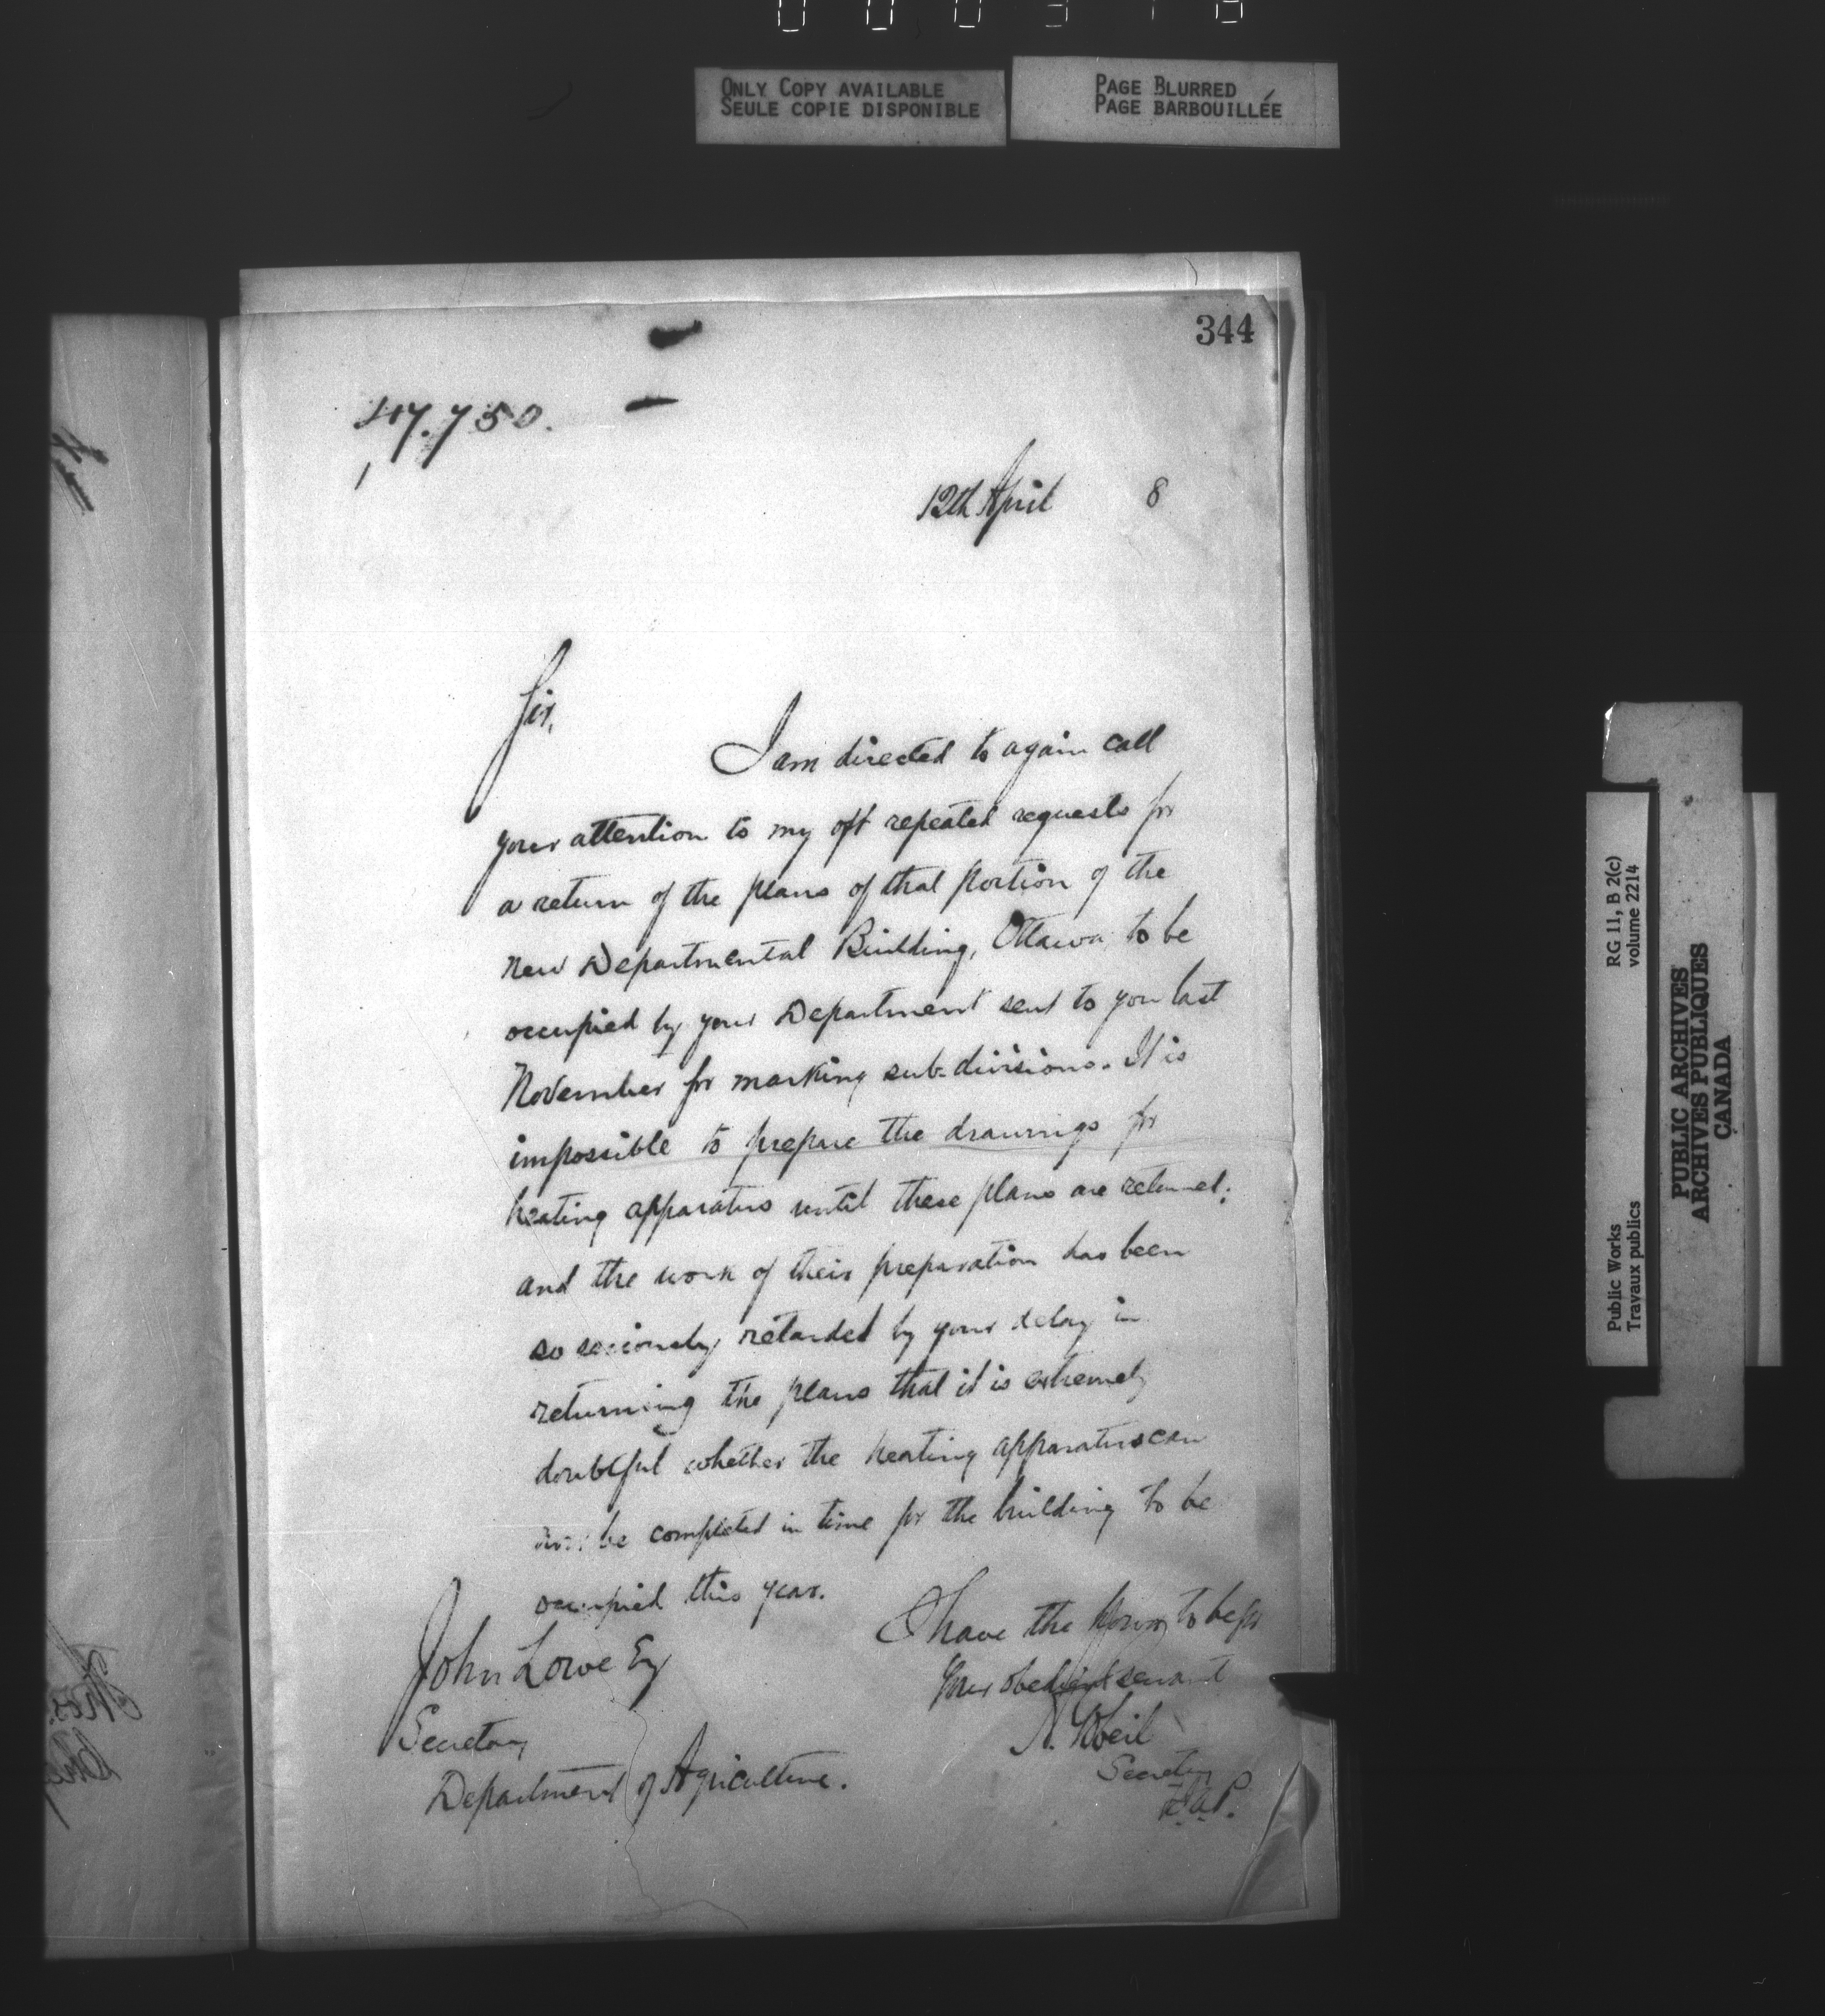 ONLY COPY AVAILABLE
SEULE COPIE DISPONIBLE
PAGE BLURRED
PAGE BARBOUILLÉE
344
47.750.
12th April 8
Sir,
I am directed to again call
your attention to my oft repeated requests for
a return of the plans of that portion of the
new Departmental Building, Ottawa to be
occupied by your Department sent to you last
November for marking sub-divisions. It is
impossible to prepare the drawings for
heating apparatus until these plans are returned;
and the work of their preparation has been
so seriously retarded by your delay in
returning the plans that it is extremely
doubtful whether the heating apparatus can
now be completed in time for the building to be
occupied this year.
I have the honor to be Sir
Your obedient servant
Secretary
John Lowe Esq
Secretary
Department of Agriculture.
RG 11, B 2(c)
volume 2214
Public Works
Travaux publics
PUBLIC ARCHIVES
ARCHIVES PUBLIQUES
CANADA